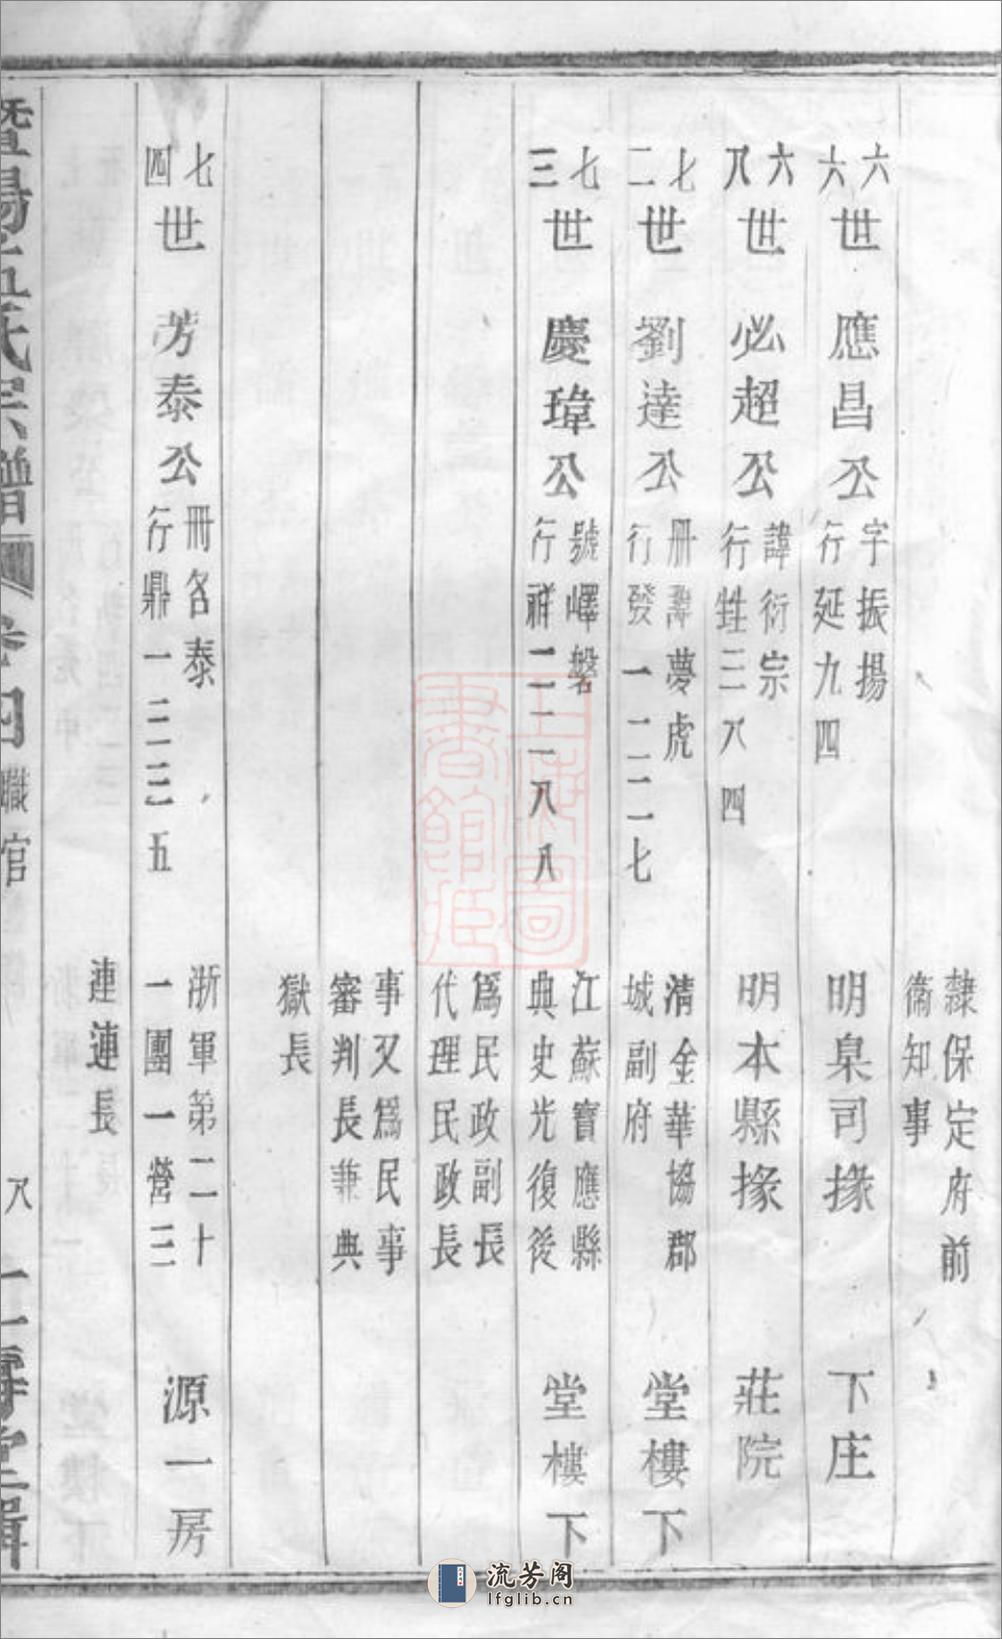 隸保定府前
衞知事
六六世 應昌公 字振揚 行延九四 明臬司掾 下庄
六八世 必超公 諱衍宗 行甡三八四 明本縣掾 莊院
七二世 劉達公 册諱夢虎 行發一二二七 清金華協鄀城副府 堂樓下
七三世 慶瑋公 號嶧磐 行祥一二一八八 江蘇寶應縣典史光復後 堂樓下
爲民政副長
代理民政長
事又爲民事
審判長兼典
獄長
七四世 芳泰公 册名泰 行鼎一二三五 浙軍第二十一團一營三 源一房
連連長
氏宗譜 卷四 職官 八 堂輯
流芳阁
lfglib.cn